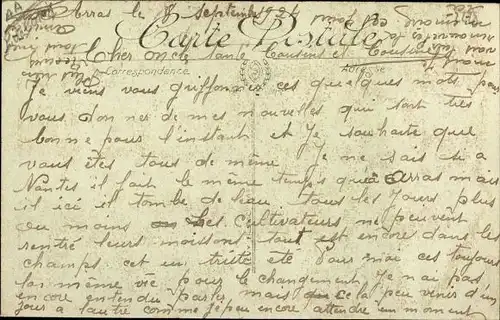 Arras le 8 septembre 192
Carte Postale
Cher oncle tante Cousins et Cousines
Correspondance
Adresse
Je viens vous griffonner ces quelques mots pour
vous donner de mes nouvelles qui sont très
bonne pour l'instant et Je souhaite que
vous êtes tous de même. Je ne sais si a
Nantes il fait le même temps qu'a Arras mais
il ici il tombe de l'eau tous les Jours plus
ou moins Les cultivateurs ne peuvent
rentré leurs moissons tout est encore dans les
champs cet un triste été Pour moi ces toujours
la même vie pour le changement Je n'ai pas
encore entendu parler mais cela peu venir d'un
jour a l'autre comme je peu encore attendre un moment